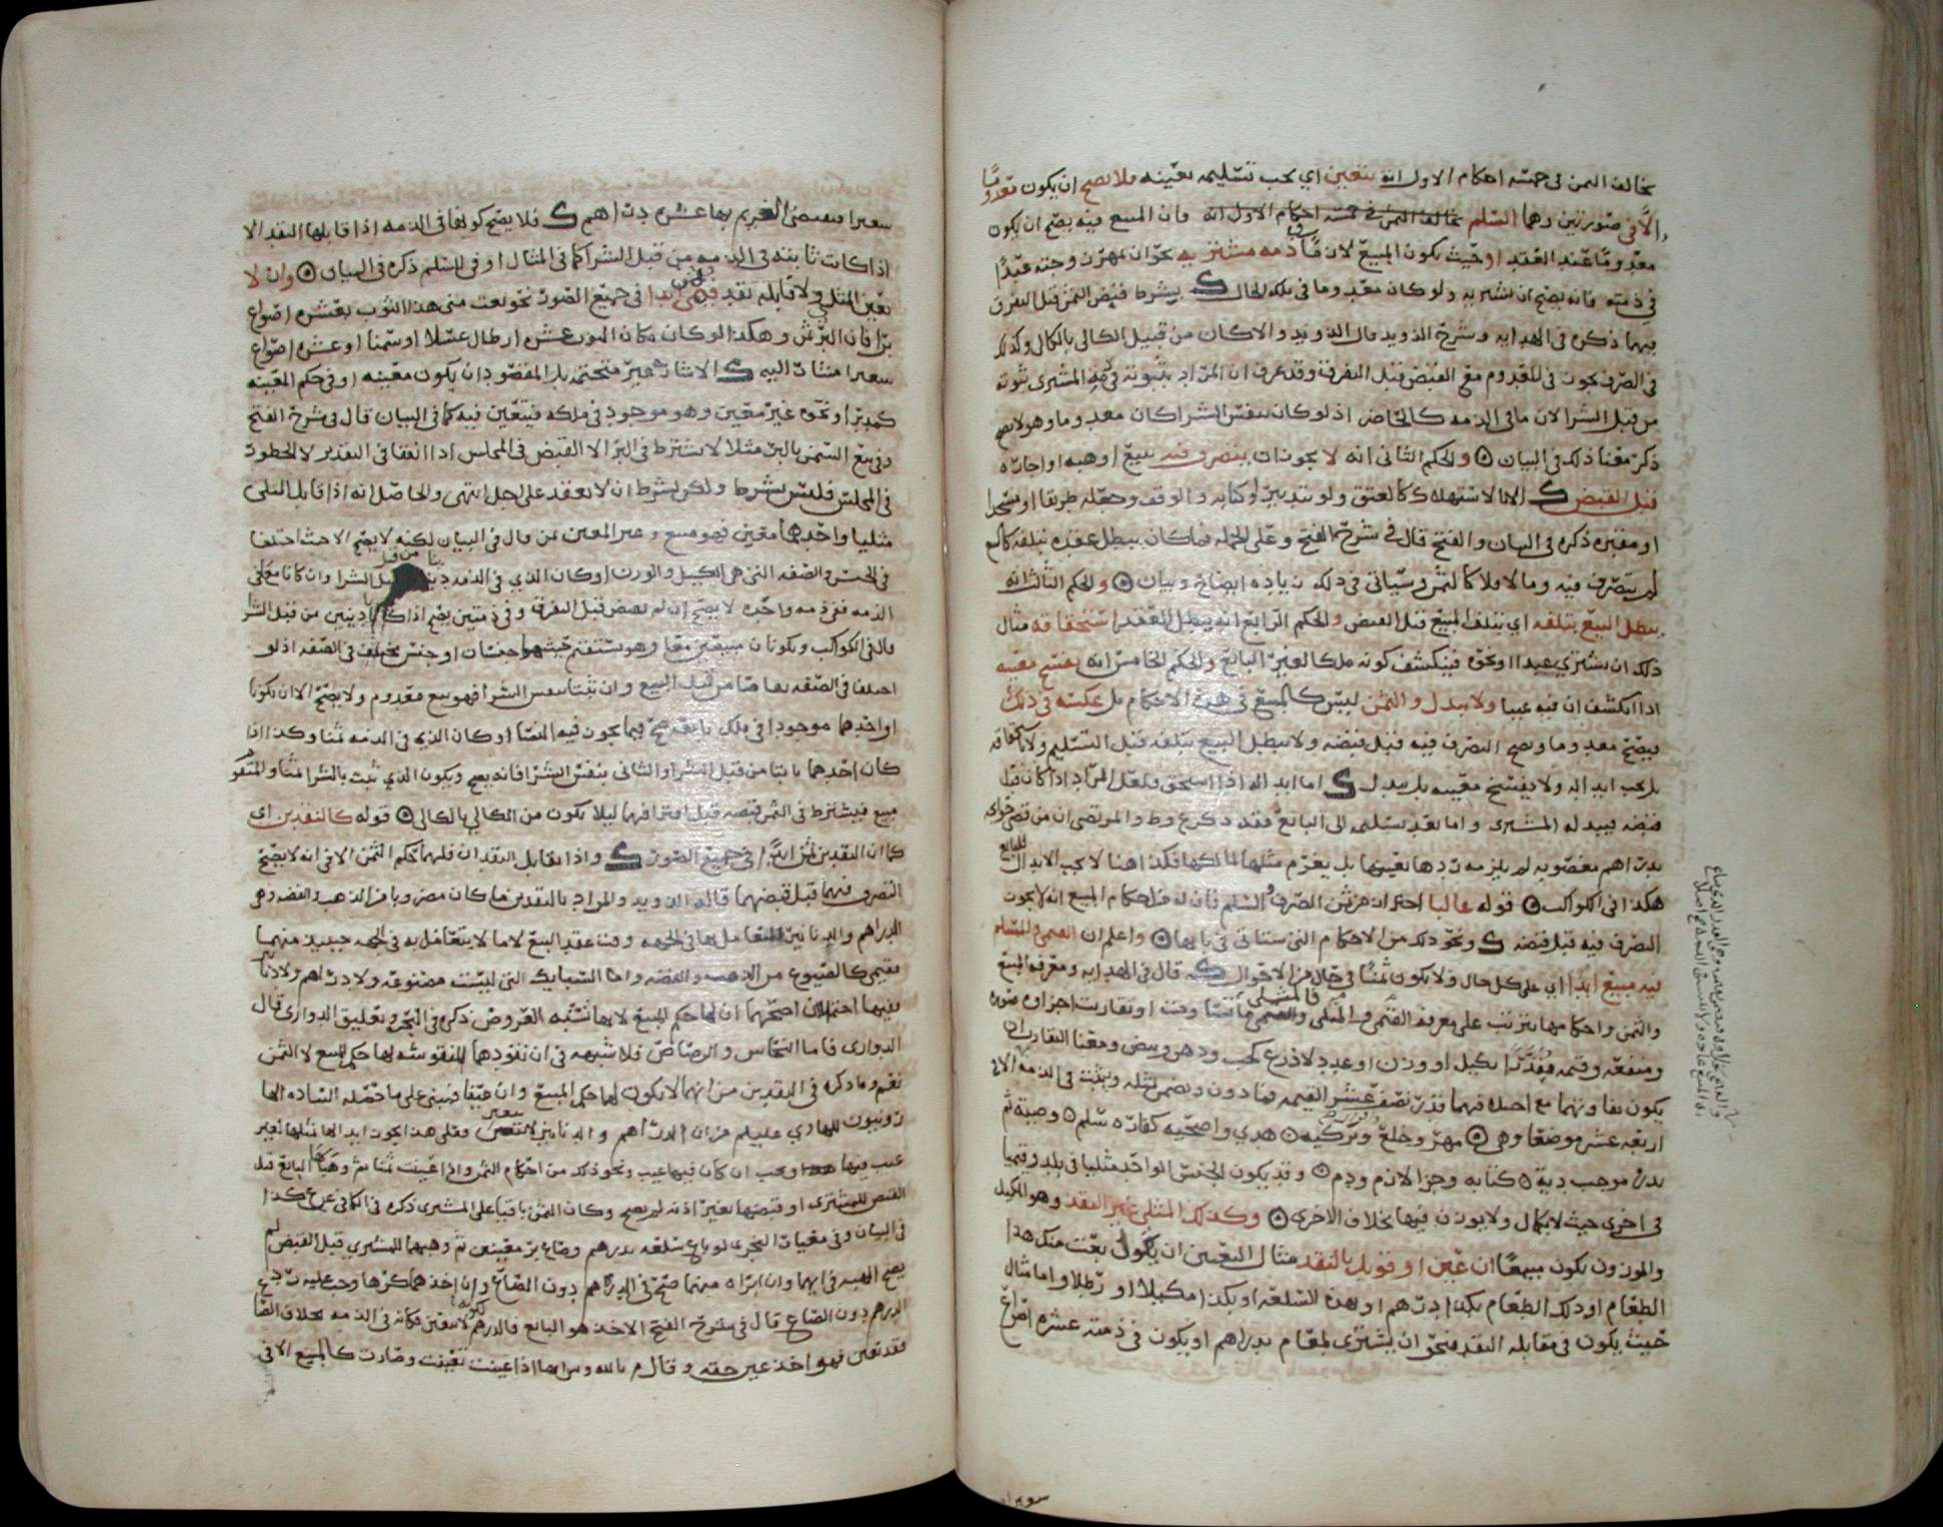 يخالف الثمن في خمسة احكام الاول انه يتعين اي يجب تسليمه بعينه فلا يصح ان يكون معدوما
الا في صورتين وهما السلم فان المبيع فيه يصح ان يكون
معدوما عند العقد او حيث يكون المبيع لازما في ذمه مشتر به نحو ان يمهر زوجته عبدا
في ذمته فانه يصح ان يشتريه ولو كان معدوما في ملكه الحال ك بشرط قبض الثمن قبل التفرق
فيهما ذكره في الهدايه وشرح الذويد قال الذويد والا كان من قبيل الكالي بالكالي وكذلك
في الصرف يجوز في المعدوم مع القبض قبل التفرق وقد عرف ان المراد بثبوته في ذمه المشتري ثبوته
من قبل الشرا لان ما في الذمه كالحاضر اذ لو كان بنفس الشرا كان معدوما وهو لا يصح
ذكر معنا ذلك في البيان ۞ والحكم الثاني انه لا يجوز ان يتصرف فيه ببيع او هبه او اجاره
قبل القبض ك الا بالاستهلاك كالعتق ولو بتدبير او كتابه والوقف وجعله طريقا او مسجدا
او مقبره ذكره في البيان والفتح قال في شرح الفتح وعلى الجمله فما كان يبطل عقده بتلفه كالمبيع
لم يتصرف فيه وما لا فلا كالثمن وسياتي في ذلك زياده ايضاح وبيان ۞ والحكم الثالث انه
يبطل البيع بتلفه اي بتلف المبيع قبل القبض والحكم الرابع انه يبطل العقد باستحقاقه مثال
ذلك ان يشتري عبدا او نحوه فينكشف كونه ملكا لغير البائع والحكم الخامس انه يفسخ معيبه
اذا انكشف ان فيه عيبا ولا يبدل والثمن ليس كالمبيع في هذه الاحكام بل عكسه في ذلك
فيصح معدوما ويصح التصرف فيه قبل قبضه ولا يبطل البيع بتلفه قبل التسليم ولا باستحقاقه
بل يجب ابداله ولا يفسخ معيبه بل يبدل ك اما ابداله اذا استحق ولعل المراد اذا كان قبل
قبضه بيد له المشتري واما بعد تسليمه الى البائع فقد ذكر ع وط والمرتضى ان من قضى غيره
بدراهم مغصوبه لم يلزمه ردها بعينها بل يغرم مثلها لمالكها فكذا هنا لا يجب الابدال للبائع
هكذا في الكواكب ۞ قوله غالبا احتراز من ثمن الصرف والسلم فان له من احكام المبيع انه لا يجوز
التصرف فيه قبل قبضه ك ونحو ذلك من الاحكام التي ستاتي في بابها ۞ واعلم ان القيمي والمسلم
فيه مبيع ابدا اي على كل حال ولا يكون ثمنا في حال من الاحوال ك قال في الهدايه ومعرفه المبيع
والثمن واحكامها يترتب على معرفه القيمي والمثلي فالمثلي ما تساوت او تقاربت اجزاؤه صوره
ومنفعه وقيمه مقدرا بكيل او وزن او عدد لا ذرع كحب ودهن وبيض ومعنا التقارب ان
يكون تفاوتهما مع اصله فيهما قدر نصف عشر القيمه فما دون ويضمن بمثله ويثبت في الذمه الا في
اربعه عشر موضعا وهي ۞ مهر وخلع وتزكيه ۞ هدي واضحيه كفاره سلم ۞ وصية ثم
نذر موجب دية ۞ كتابه وجزا لازم ودم ۞ وقد يكون الجنس الواحد مثليا في بلد وقيميا
في اخرى حيث لا يكال ولا يوزن فيها بخلاف الاخرى ۞ وكذلك المثلي غير النقد وهو المكيل
والموزون يكون مبيعا ان عين او قوبل بالنقد مثال التعيين ان يكون بعت منك هذا
الطعام او ذلك الطعام بكذا درهم او بهذه السلعه او بكذا مكيلا او رطلا واما مثال
حيث يكون في مقابله النقد فنحو ان يشتري طعام بدراهم او يكون في ذمته عشره اصواع
شعيرا فيقضي الغريم بها عشره دراهم ك فلا يصح كونها في الذمه اذا قابلها النقد الا
اذا كانت ثابته في الذمه من قبل الشرا كما في المثال او في السلم ذكره في البيان ۞ وان لا
يعين المثلي ولا قابله نقد فثمن ابدا في جميع الصور نحو بعت مني هذا الثوب بعشره اصواع
برا فان البر ثمن وهكذا لو كان مكان البر عشره ارطال عسلا او سمنا او عشره اصواع
شعيرا مشارا اليه ك الاشاره غير متحتمه بل المقصود ان يكون معينه او في حكم المعينه
كمدبر او نحوه غير معين وهو موجود في ملكه فيتعين فيه كما في البيان قال في شرح الفتح
وفي بيع السمن بالبر مثلا لا يشترط في البر الا القبض في المجلس اذا اتفقا في التقدير لا الحضور
في المجلس فليس بشرط ولكن يشرط ان لا يعقد على اجل انتهى والحاصل انه اذا قابل المثلي
مثليا واحدهما معين فهو مبيع وغير المعين ثمن قال في البيان لكنه لا يصح الا حيث اختلفا
في الجنس والصفه التي هي الكيل والوزن او كان الذي في الذمه دينا من قبل الشرا وان كانا معا في
الذمه ففي ذمه واحده لا يصح ان لم يقبض قبل التفرق وفي ذمتين يصح اذا كانا دينين من قبل الشرا
قال في الكواكب ويكونان مبيعين معا وهو يستقيم حيث هما جنسان او جنس مختلف في الصفه اذ لو
اختلفا في الصفه تقاصا من قبل البيع وان ثبتا بنفس الشرا فهو بيع معدوم ولا يصح الا ان يكونا
او احدهما موجودا في ملك بائعه صح فيما يجوز فيه النسا او كان الذي في الذمه ثمنا وكذا اذا
كان احدهما ثابتا من قبل الشرا والثاني بنفس الشرا فانه يصح ويكون الذي ثبت بالشرا ثمنا والمتقدم
مبيع فيشترط في الثمن قبضه قبل افتراقهما ليلا يكون من الكالي بالكالي ۞ قوله كالنقدين اي
كما ان النقدين ثمن ابدا في جميع الصور ك واذا تقابل النقدان فلهما حكم الثمن الا في انه لا يصح
التصرف فيهما قبل قبضهما قاله الذويد والمراد بالنقدين ما كان مضروبا من الذهب والفضه وهي
الدراهم والدنانير المتعامل بها في الجهه وقت عقد البيع لا ما لا يتعامل به في الجهه جنسه منهما
فقيمي كالمصنوع من الذهب والفضه واما السبايك التي ليست مصنوعه ولا دراهم ولا دنانير
ففيها احتمالان اصحهما ان لها حكم المبيع لانها تشبه العروض ذكره في البحر وتعليق الدواري قال
الدواري فاما النحاس والرصاص فلا شبهه في ان نقودهما المنقوشه لها حكم المبيع لا الثمن
نعم وما ذكره في النقدين من انهما لا يكون لهما حكم المبيع وان عينا فمبني على ما حصله الساده الها
رونيون للهادي عليلم من ان الدراهم والدنانير لا تتعين فعلى هذا يجوز ابدالها بمثلها لغير
عيب فيها ويجب ان كان فيها عيب ونحو ذلك من احكام الثمن واذا عينت ثمنا ثم وهبها البائع قبل
القبض للمشتري او قبضها بغير اذنه لم يصح وكان الثمن باقيا على المشتري ذكره في الكافي عن ع كذا
في البيان وفي معيار النجري لو باع سلعه بدرهم وصاع بر معينين ثم وهبهما للمشتري قبل القبض لم
يصح الهبه في ايهما وان ابراه منهما صح في الدرهم دون الصاع وان اخذهما كرها وجب عليه رد
الدرهم دون الصاع قال في شرح الفتح الاخذ هو البائع والدرهم لكونه لا يتعين فكانه في الذمه بخلاف الصاع
فقد تعين فهو اخذ عين حقه وقال م بالله انها اذا عينت تعينت وصارت كالمبيع الا في